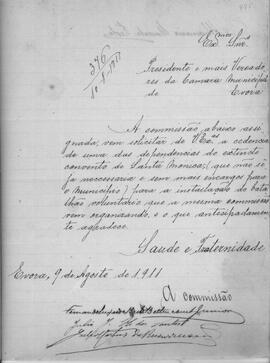 Exmos Snrs
376
10-8-911
Presidente e mais Vereado
res da Camara Municipal
de Evora
A commissão abaixo assi
gnada, vem solicitar de V. Exas a cedencia
de uma das dependencias do extincto
convento de Santa Monica, (que não se
ja necessaria e sem mais encargos para
o Municipio) para a installação do bata
lhão voluntario que a mesma commissão
vem organisando, e o que antecipadamen
te agradece.
Saude e Fraternidade
Evora, 9 de Agosto de 1911
A Commissão